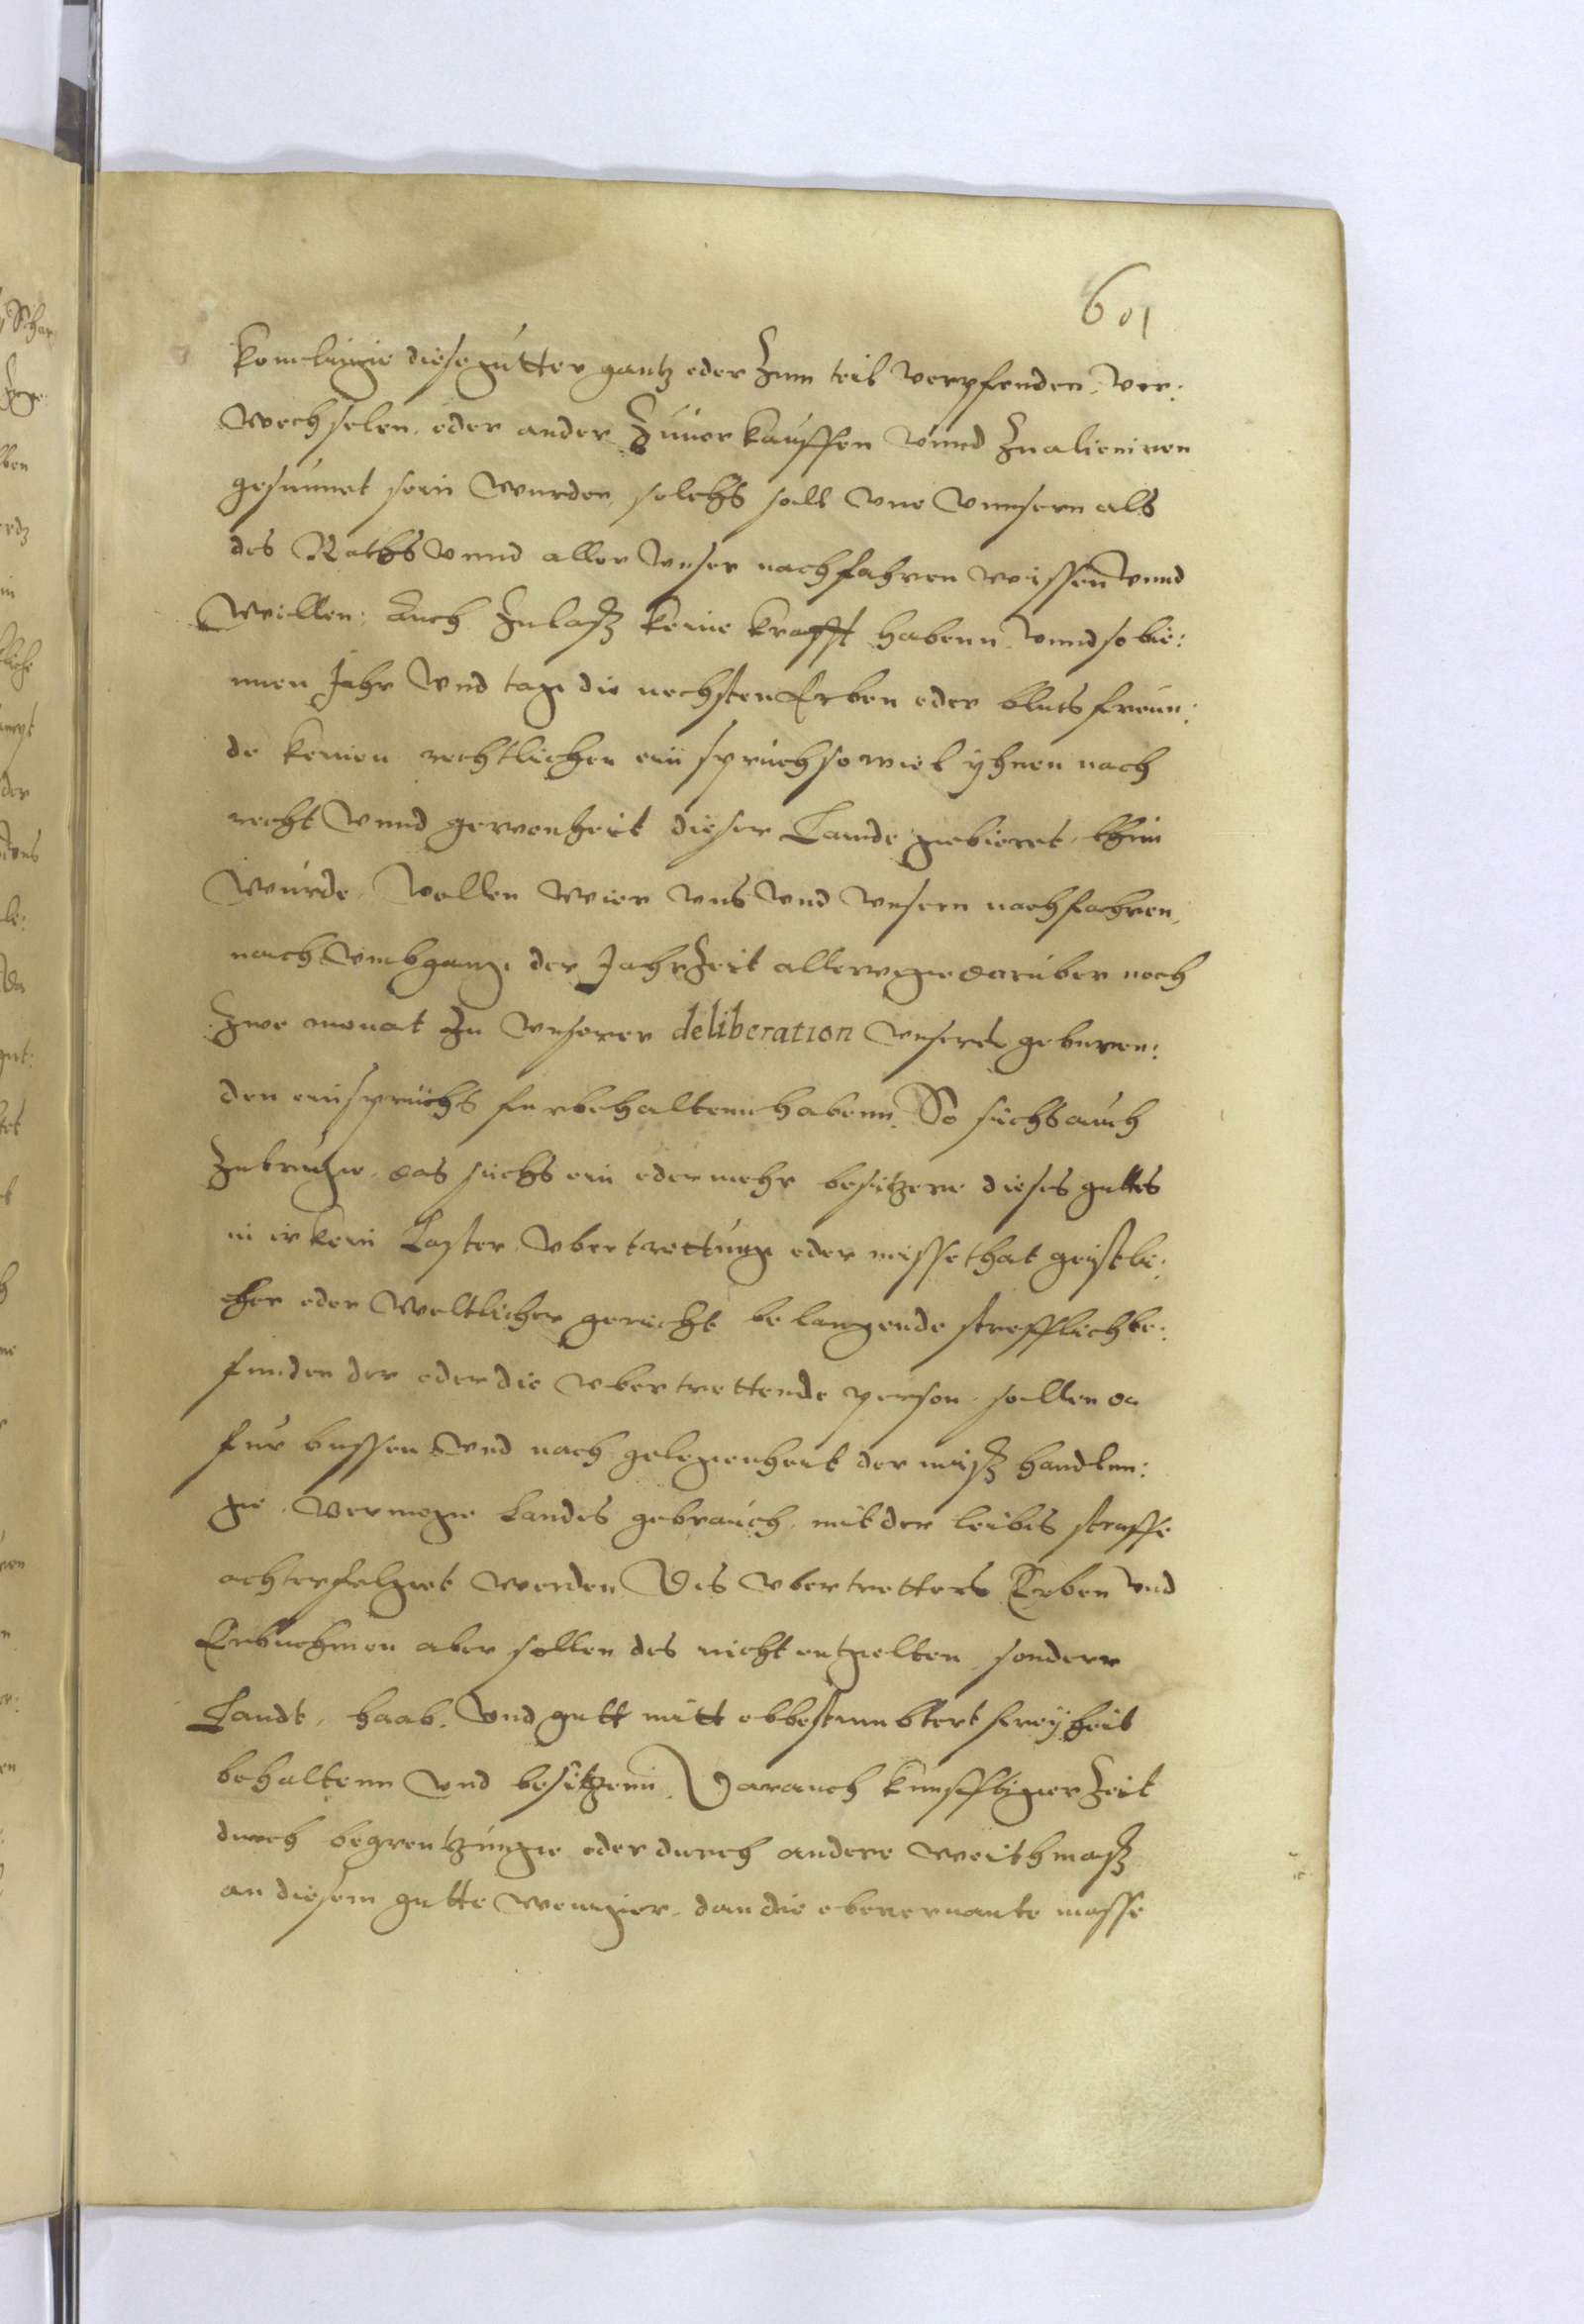 601
komlinge diese gutter gantz oder Zum teil verpfenden, ver:
wechselen, oder ander Zuuerkauffen vnnd Zualieniren
gesinnet sein wurden, solchs soll one vnnsern als
des Raths vnnd aller vnser nachfahren wissen vnnd
willen: Auch Zulasz keine krafft habenn, vnnd so bin:
nnen Jahr vnd tage die nechsten Erben oder blutsfreun:
de keinen rechtlichen einspruch so wiel yhnen nach
recht vnnd gewonheit dieser Lande gebieret, thun
wurde, Wollen wier vns vnd vnsern nachfahren,
nach vmbgange der JahrZeit allwege daruber noch
Zwe monat Zu vnserer deliberation vnsers geburen:
den einspruchs furbehaltenn habenn, So sichs auch
Zutruge, das sichs ein oder mehr besitzere dieses guttes
in irkein Laster vbertrettung oder missethat geistli:
cher oder Weltlicher gericht belangende strefflich be:
funden der oder die vbertrettende person, sollen da
fur bussen vnd nach gelegenheit der misz handlun:
ge, Vermoge Landes gebrauch, mit der leibes straffe
achterfolget werden Des vbertretters Erben vnd
Erbnehmen aber sollen des nicht entgelten sondern
Landt, haab, vnd gutt mitt obbestimbtert freyheit
behaltenn vnd besitzenn, Dar auch kunfftiger Zeit
durch begrentzunge oder durch andere weithmasz
an diesem gutte weniger, dan die obenernante masse